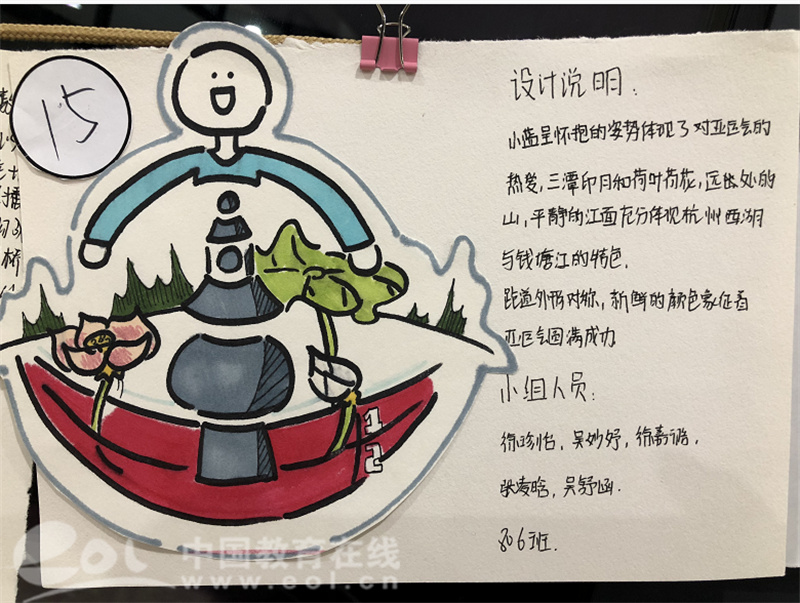 15
1
2
设计说明:
小莲呈怀抱的姿势体现了对亚运会的
热爱,三潭印月和荷叶荷花,远处的
山,平静的江面充分体现杭州西湖
与钱塘江的特色.
跑道外形对称,新鲜的颜色象征着
亚运会圆满成功
小组人员:
徐珍怡,吴妙妤,徐嘉
张凌晗,吴舒涵.
806班.
eol 中国教育在线
www.eol.cn